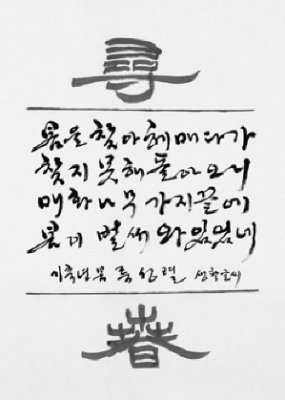 尋
봄을 찾아 헤매다가
찾지 못해 돌아오니
매화나무 가지끝에
봄이 벌써 와있었네
기축년 봄
春